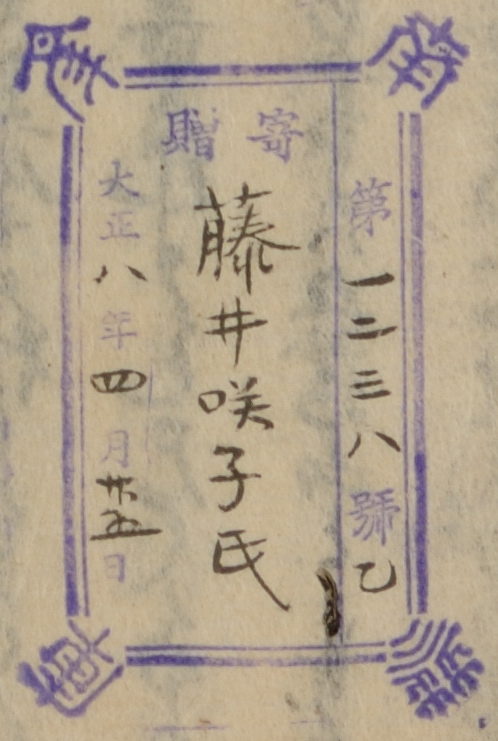 寄贈
第一二三八號乙
藤井咲子氏
大正八年四月廿五日